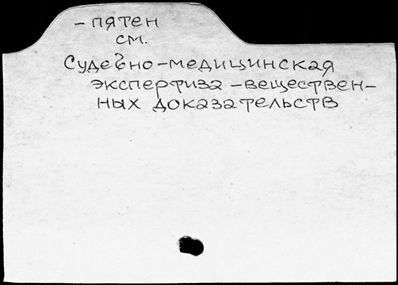 - пятен
см.
Судебно-медицинская
экспертиза - веществен-
ных доказательств